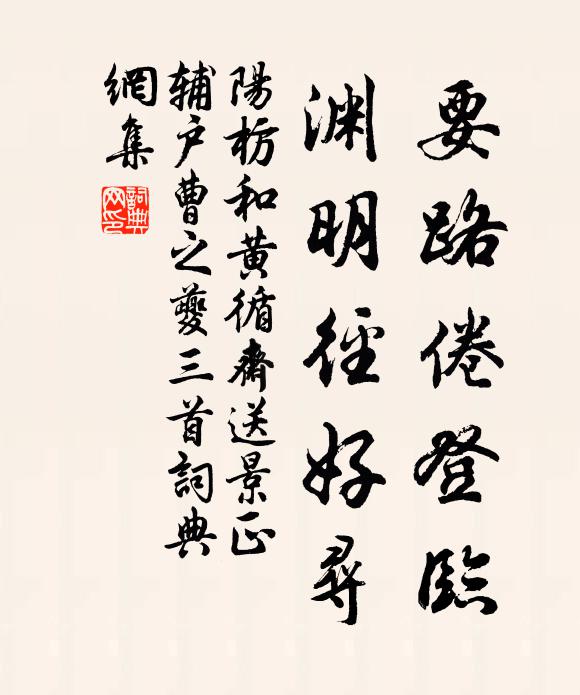 要路倦登臨
渊明徑好尋
陽枋和黄循齋送景正
辅户曹之夔三首詞典
網集
詞典网印